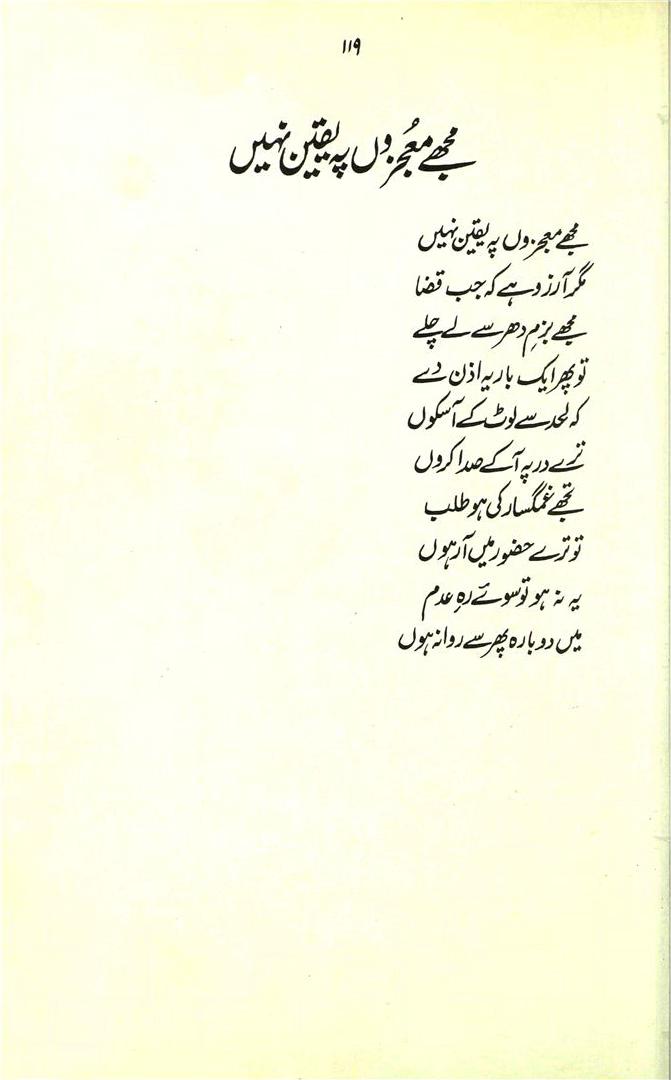 ۱۱۹
مجھے معجُزوں پہ یقین نہیں
مجھے معجزوں پہ یقین نہیں
مگر آرزو ہے کہ جب قضا
مجھے بزمِ دھر سے لے چلے
تو پھر ایک بار یہ اذن دے
کہ لحد سے لوٹ کے آسکوں
ترے در پہ آ کے صدا کروں
تجھے غمگسار کی ہو طلب
تو ترے حضور میں آرہوں
یہ نہ ہو تو سوئے رہِ عدم
میں دوبارہ پھر سے روانہ ہوں